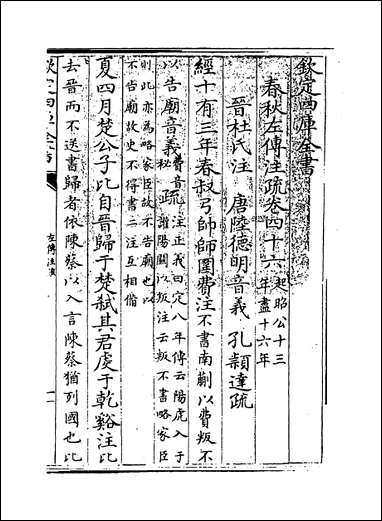 欽定四庫全書
春秋左傳注疏卷四十六 起昭公十三
年盡十六年
晉杜氏注 唐陸德明音義 孔穎達疏
經十有三年春叔弓帥師圍費注不書南蒯以費叛不
以告廟音義費音
秘疏注正義曰定八年傳云陽虎入于
讙陽關以叛注云叛不書略家臣
則此亦為略家臣故不告廟也以
不告廟故史不得書二注互相備
夏四月楚公子比自晉歸于楚弑其君虔于乾谿注比
去晉而不送書歸者依陳蔡以入言陳蔡猶列國也比
欽定四庫全書
左傳注疏
一